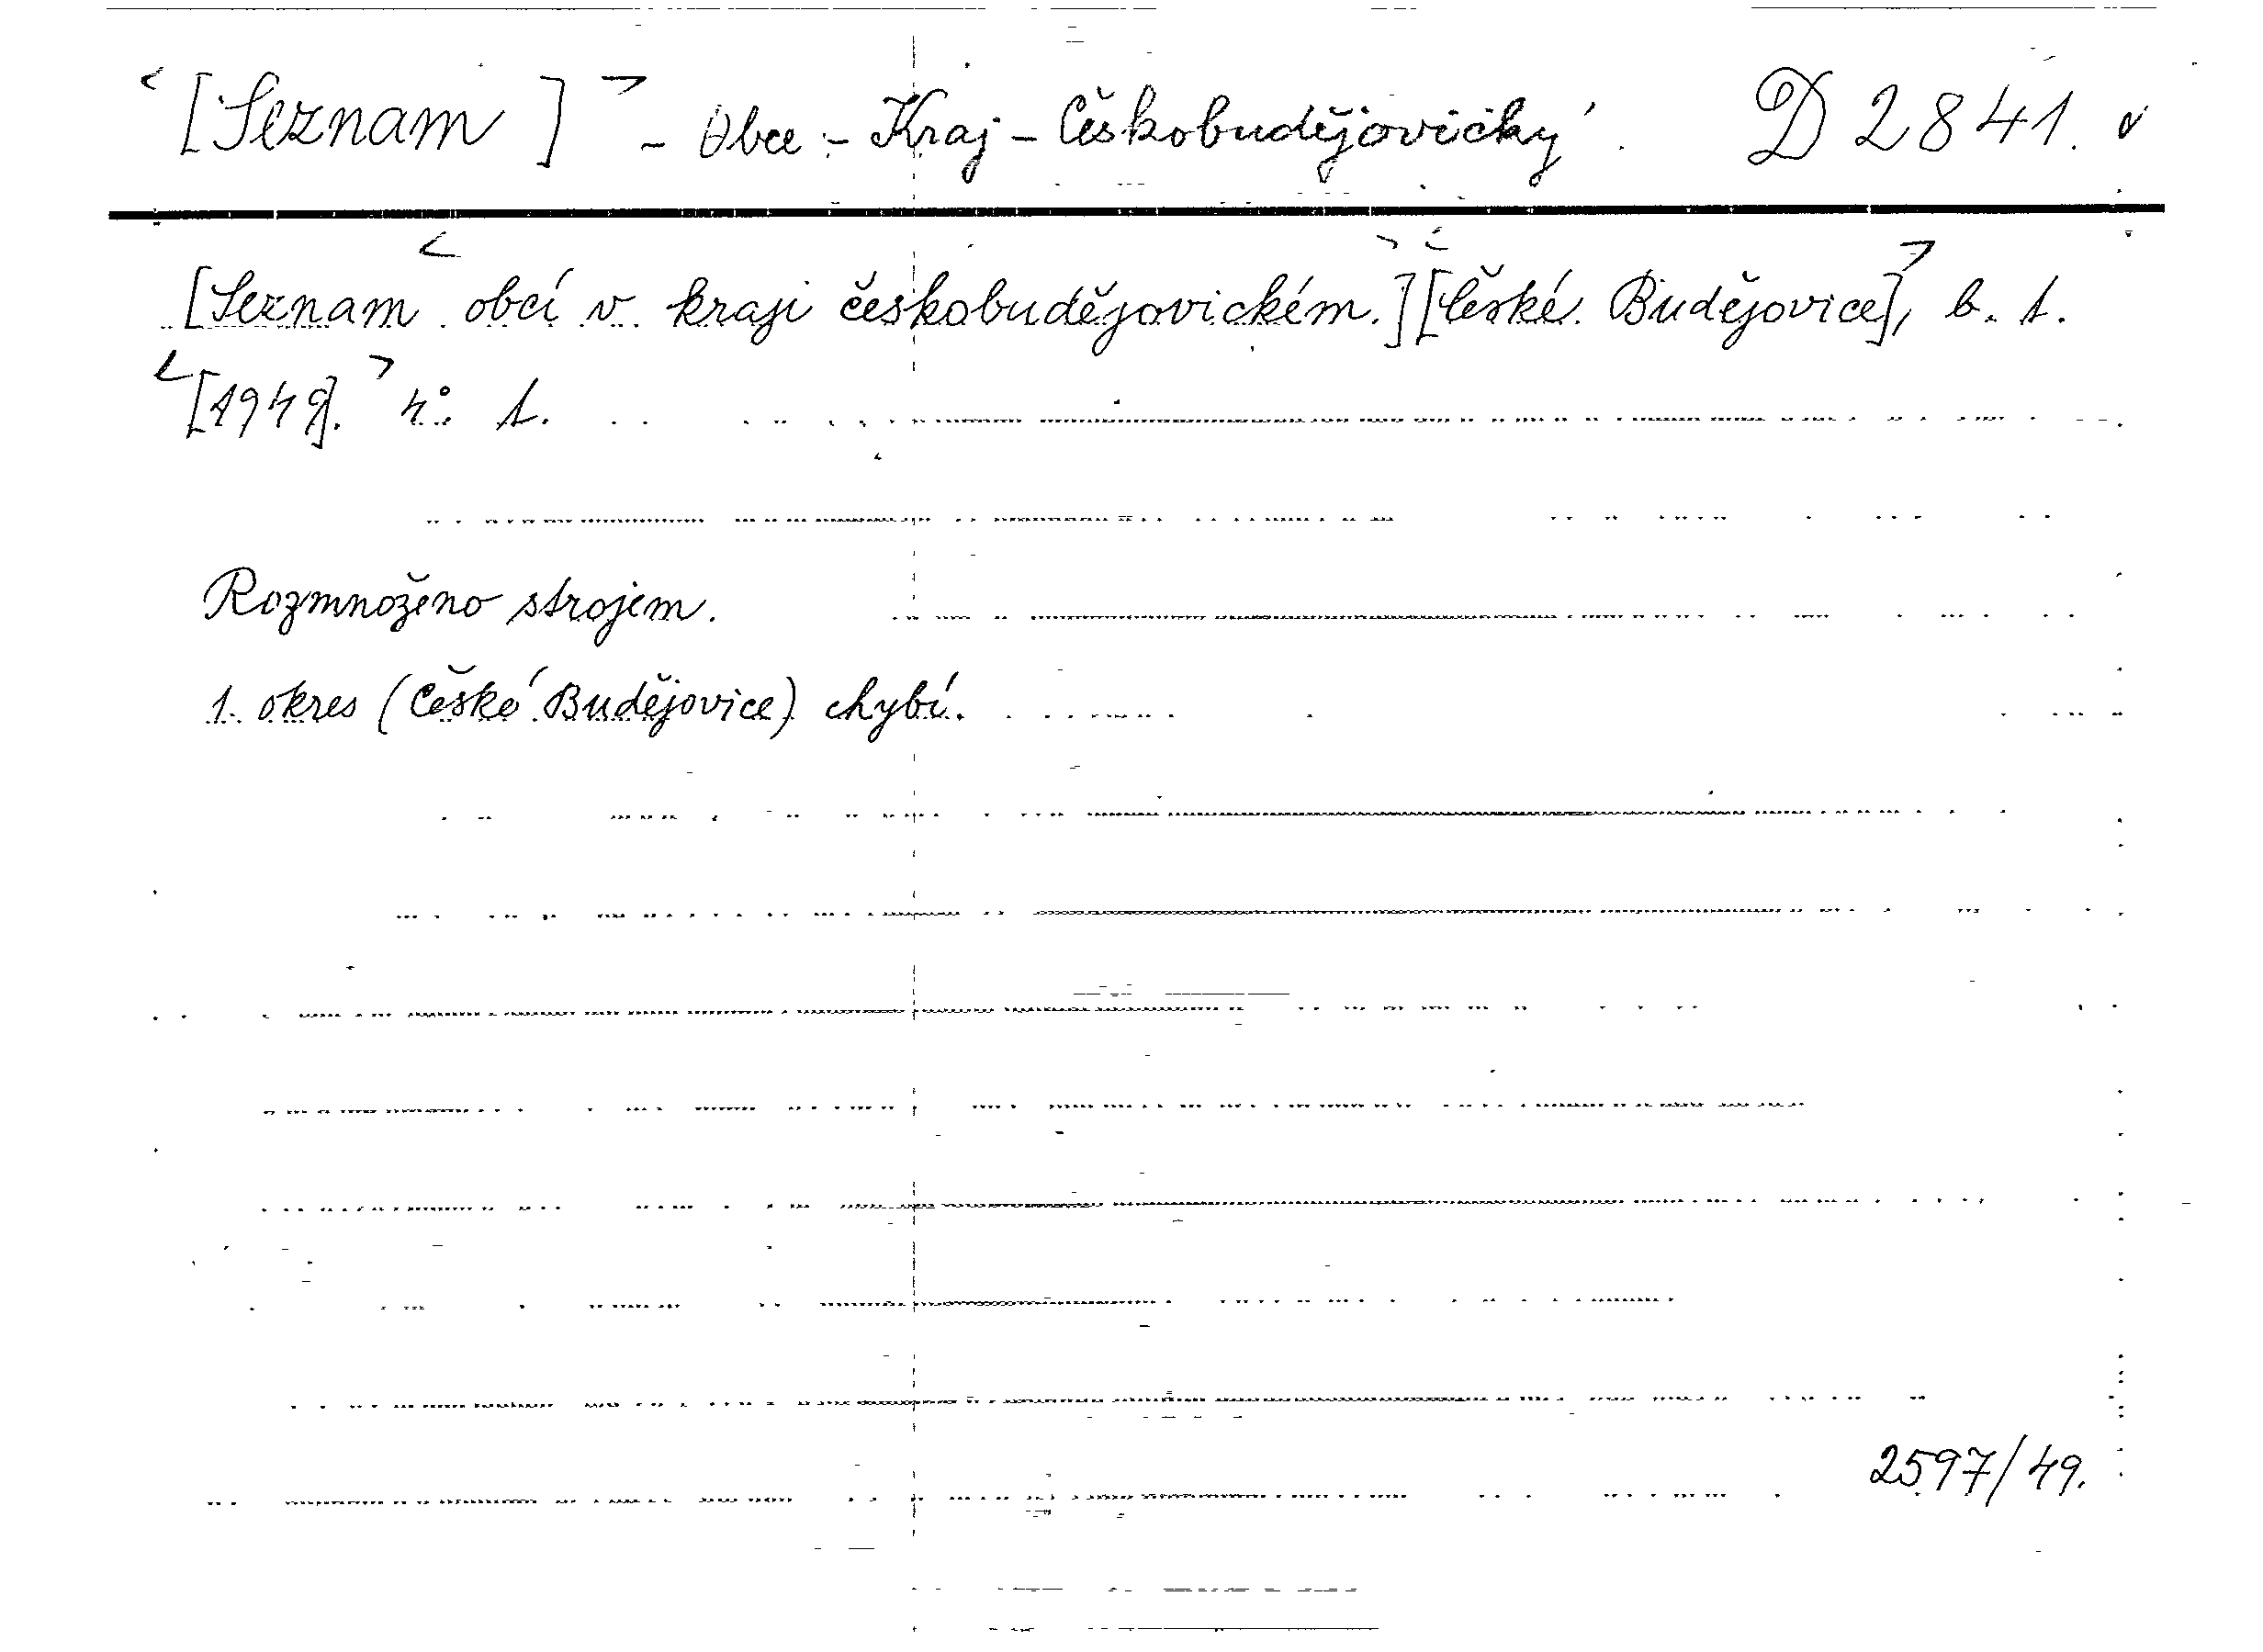 <[Seznam]> - Obce - Kraj - Českobudějovický. D 2841. v
[Seznam <obcí v kraji českobudějovickém.>] <[České Budějovice]>, b. t.
<[1949].> 4°. 1.
Rozmnoženo strojem.
1. okres (České Budějovice) chybí.
2597/49.